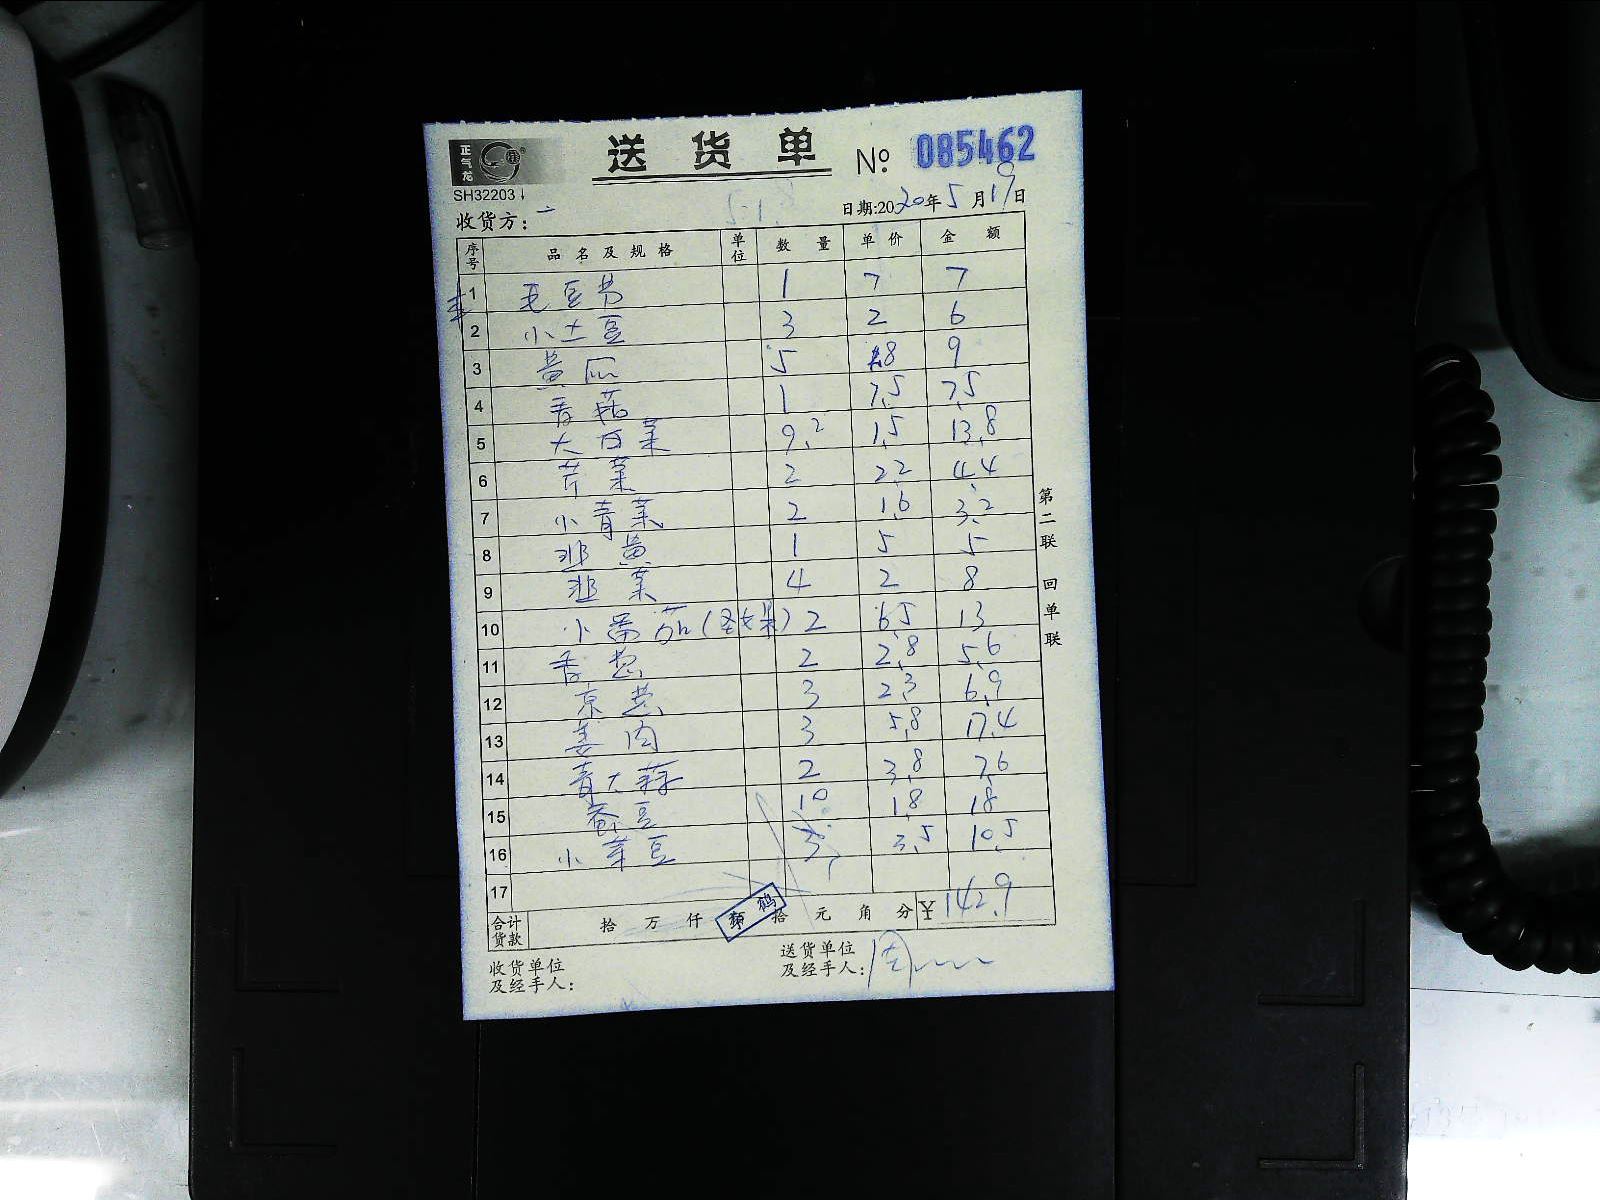 正气龙
送货单 № 085462
SH32203
收货方:
日期:2020年5月19日
序号 品名及规格 单位 数量 单价 金额
1 毛豆节 1 7 7
2 小土豆 3 2 6
3 黄瓜 5 1.8 9
4 香菇 1 7.5 7.5
5 大白菜 9.2 1.5 13.8
6 芹菜 2 2.2 4.4
7 小青菜 2 1.6 3.2
8 韭黄 1 5 5
9 韭菜 4 2 8
10 小番茄(圣女果) 2 6.5 13
11 香葱 2 2.8 5.6
12 京葱 3 2.3 6.9
13 姜肉 3 5.8 17.4
14 青大蒜 2 3.8 7.6
15 蚕豆 10 1.8 18
16 小芽豆 3 3.5 10.5
17
合计货款 拾 万 仟 拾 元 角 分 ¥142.9
收货单位及经手人:
送货单位及经手人:
第二联 回单联